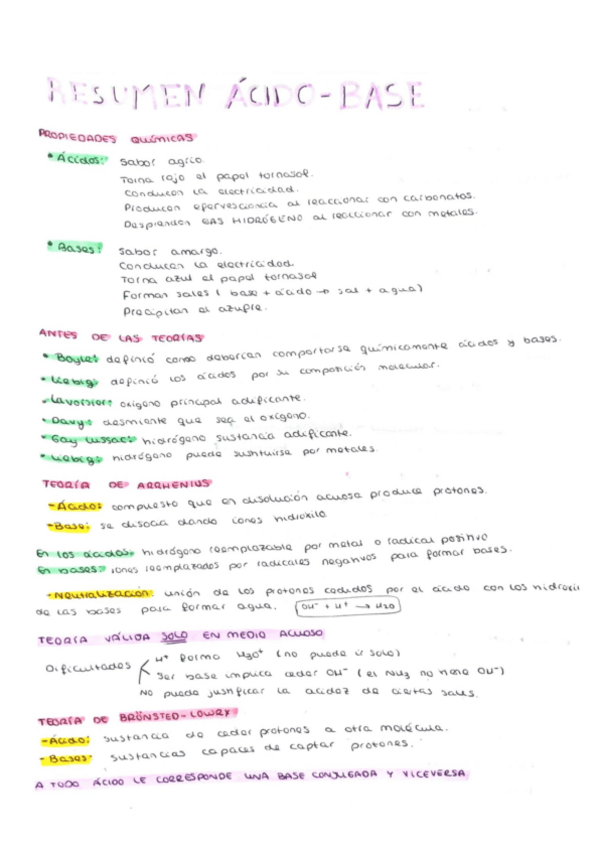 RESUMEN ÁCIDO-BASE
PROPIEDADES QUÍMICAS
• Ácidos: sabor agrio.
Torna rojo el papel tornasol.
Conducen la electricidad.
Producen efervescencia al reaccionar con carbonatos.
Desprenden GAS HIDRÓGENO al reaccionar con metales.
• Bases: sabor amargo.
Conducen la electricidad.
Torna azul el papel tornasol
Forman sales ( base + ácido → sal + agua)
Precipitan el azufre.
ANTES DE LAS TEORÍAS
• Boyle: definió como deberían comportarse químicamente ácidos y bases.
• Liebig: definió los ácidos por su composición molecular.
• Lavoisier: oxígeno principal acidificante.
• Davy: desmiente que sea el oxígeno.
• Gay Lussac: hidrógeno sustancia acidificante.
• Liebig: hidrógeno puede sustituirse por metales.
TEORÍA DE ARRHENIUS
- Ácido: compuesto que en disolución acuosa produce protones.
- Base: se disocia dando iones hidroxilo
En los ácidos: hidrógeno reemplazable por metal o radical positivo
En bases: iones reemplazados por radicales negativos para formar bases.
- Neutralización: unión de los protones cedidos por el ácido con los hidroxi
de las bases para formar agua. OH⁻ + H⁺ → H2O
TEORÍA VÁLIDA SOLO EN MEDIO ACUOSO
Dificultades
H⁺ forma H3O⁺ (no puede ir solo)
Ser base implica ceder OH⁻ ( el NH3 no tiene OH⁻)
NO puede justificar la acidez de ciertas sales.
TEORÍA DE BRÖNSTED-LOWRY
- Ácido: sustancia de ceder protones a otra molécula.
- Bases: sustancias capaces de captar protones.
A TODO ÁCIDO LE CORRESPONDE UNA BASE CONJUGADA Y VICEVERSA